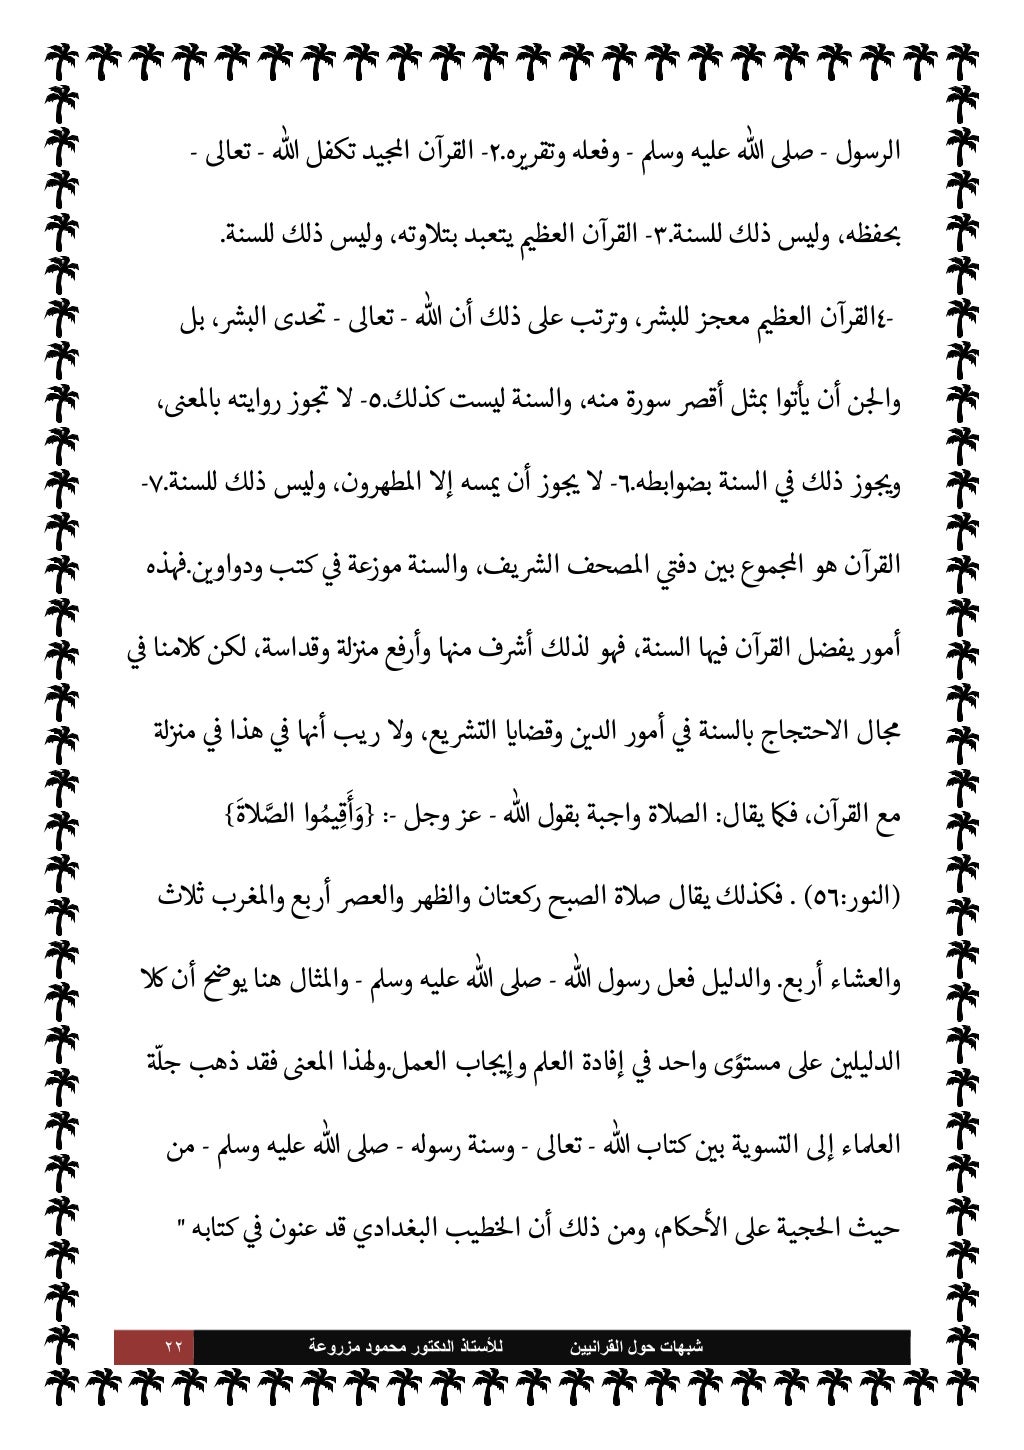 الرسول - صلى الله عليه وسلم - وفعله وتقريره.٢- القرآن المجيد تكفل الله - تعالى -
بحفظه، وليس ذلك للسنة.٣- القرآن العظيم يتعبد بتلاوته، وليس ذلك للسنة.
-٤القرآن العظيم معجز للبشر، وترتب على ذلك أن الله - تعالى - تحدى البشر، بل
والجن أن يأتوا بمثل أقصر سورة منه، والسنة ليست كذلك.٥- لا تجوز روايته بالمعنى،
ويجوز ذلك في السنة بضوابطه.٦- لا يجوز أن يمسه إلا المطهرون، وليس ذلك للسنة.٧-
القرآن هو المجموع بين دفتي المصحف الشريف، والسنة موزعة في كتب ودواوين.فهذه
أمور يفضل القرآن فيها السنة، فهو لذلك أشرف منها وأرفع منزلة وقداسة، لكن كلامنا في
مجال الاحتجاج بالسنة في أمور الدين وقضايا التشريع، ولا ريب أنها في هذا في منزلة
مع القرآن، فكما يقال: الصلاة واجبة بقول الله - عز وجل -: {وَأَقِيمُوا الصَّلاةَ}
(النور:٥٦) . فكذلك يقال صلاة الصبح ركعتان والظهر والعصر أربع والمغرب ثلاث
والعشاء أربع. والدليل فعل رسول الله - صلى الله عليه وسلم - والمثال هنا يوضح أن كلا
الدليلين على مستوًى واحد في إفادة العلم وإيجاب العمل.ولهذا المعنى فقد ذهب جلّة
العلماء إلى التسوية بين كتاب الله - تعالى - وسنة رسوله - صلى الله عليه وسلم - من
حيث الحجية على الأحكام، ومن ذلك أن الخطيب البغدادي قد عنون في كتابه "
شبهات حول القرانيين للأستاذ الدكتور محمود مزروعة ٢٢